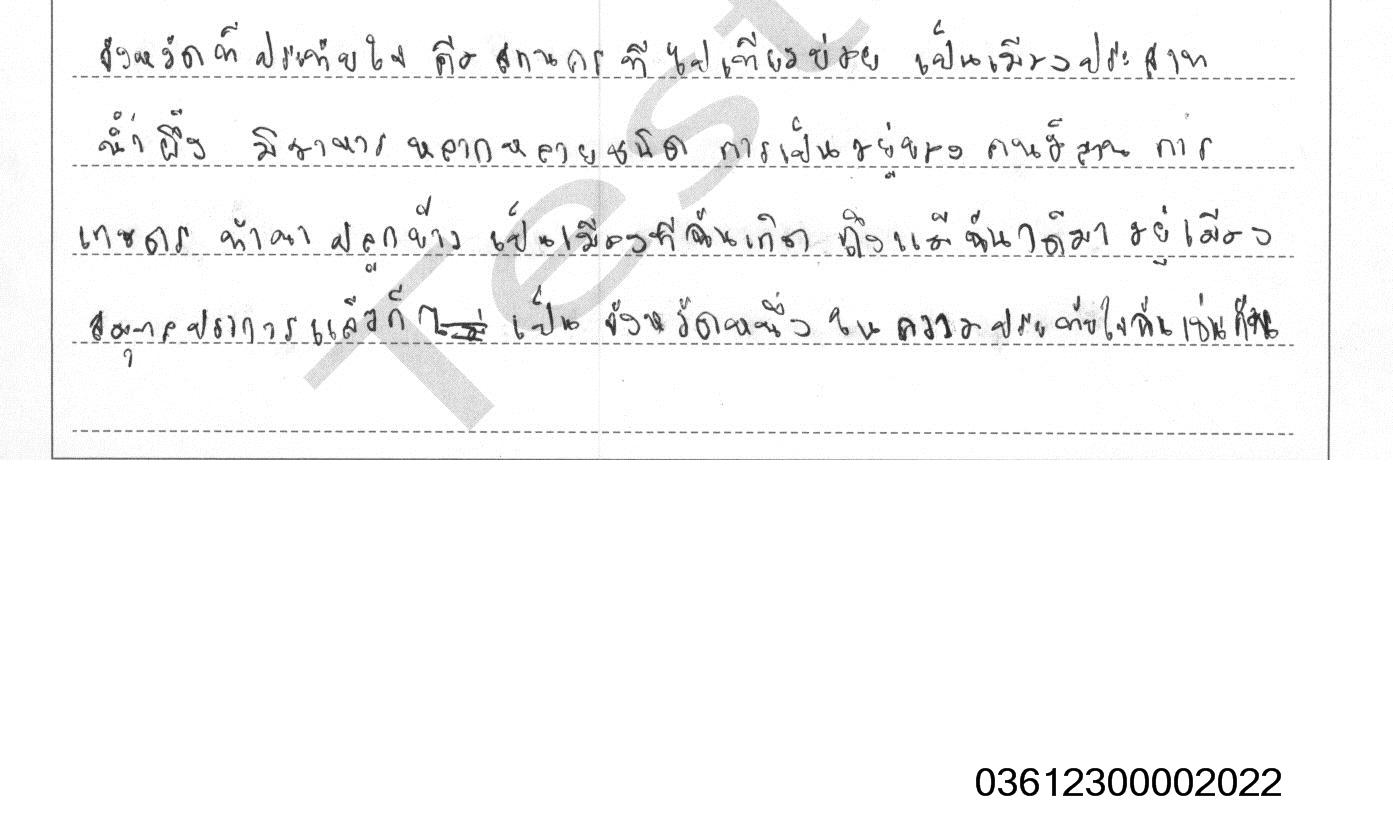 จังหวัดที่ประทับใจ คือ สกลนคร ที่ไปเที่ยวบ่อย เป็นเมืองประสาท
น้ำผึ้ง มีอาหารหลากหลายชนิด การเป็นอยู่ของ คนอีสาน การ
เกษตร ทำนา ปลูกข้าว เป็นเมืองที่ฉันเกิด ถึงแม้ฉันได้มา อยู่เมือง
สมุทรปราการแล้วก็ เป็น จังหวัดหนึ่ง ใน ความประทับใจฉันเช่นกัน
Test
03612300002022